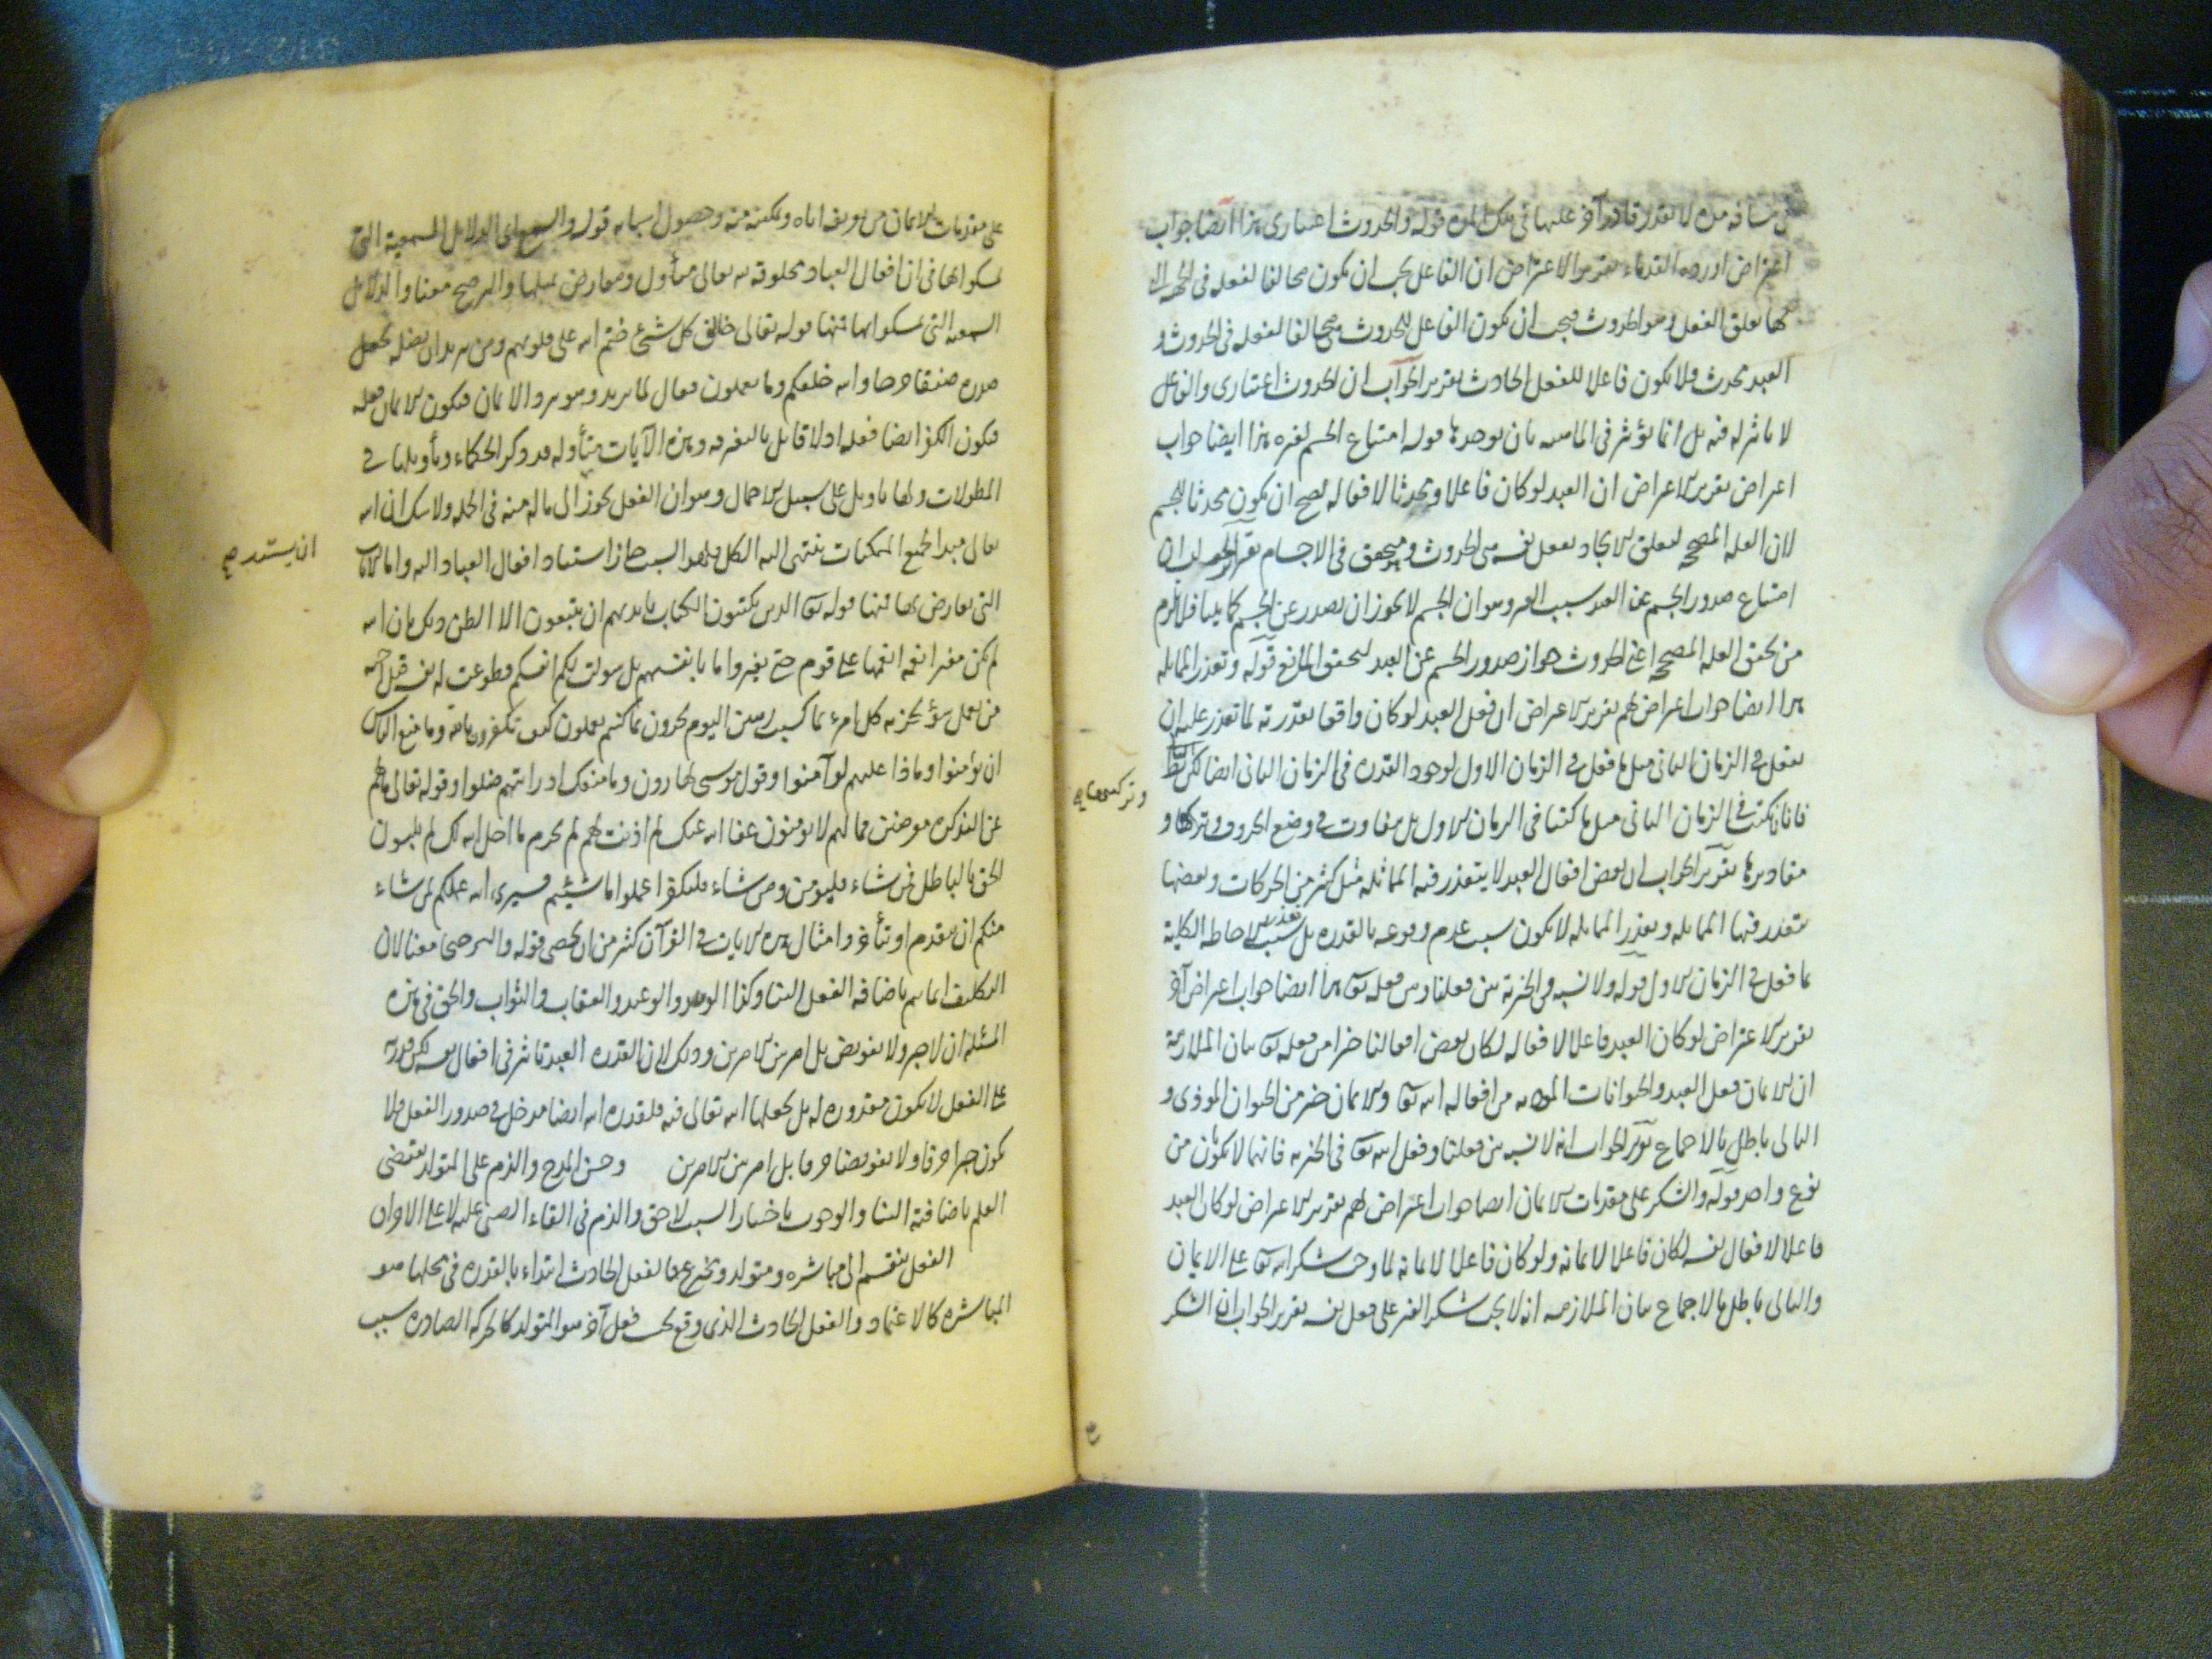 مسافة مدة لا يقدر قادر آخر عليها في تلك المدة قوله والحدوث اعتباري هذا ايضا جواب
اعتراض اورده القدماء تقرير الاعتراض ان الفاعل يجب ان يكون مخالفا لفعله في الجهة التي
بها تعلق الفعل وهو الحدوث فيجب ان يكون الفاعل للحدوث مخالفا لفعله في الحدوث و
العبد محدث فلا يكون فاعلا للفعل الحادث تقرير الجواب ان الحدوث اعتباري والفاعل
لا تاثير له فيه بل انما يؤثر في الماهية بان يوجدها قوله امتناع الجسم لغيره هذا ايضا جواب
اعتراض تقرير الاعتراض ان العبد لو كان فاعلا ومحدثا لافعاله لصح ان يكون محدثا للجسم
لان العلة المصححة لتعلق الايجاد بفعل نفسه هي الحدوث وهو متحقق في الاجسام تقرير الجواب ان
امتناع صدور الجسم عن العبد بسبب الغير وهو ان الجسم لا يجوز ان يصدر عن الجسم كما بينا فلا يلزم
من تحقق العلة المصححة اعني الحدوث جواز صدور الجسم عن العبد لتحقق المانع قوله وتعذر المماثلة
هذا ايضا جواب اعتراض لهم تقرير الاعتراض ان فعل العبد لو كان واقعا بقدرته لما تعذر عليه ان
يفعل في الزمان الثاني مثل ما فعل في الزمان الاول لوجود القدرة في الزمان الثاني ايضا لكن
فانا نكتب في الزمان الثاني مثل ما كتبنا في الزمان الاول بل يتفاوت في وضع الحروف وتركبها و
وتركيبها
مقاديرها تقرير الجواب ان بعض افعال العبد لا يتعذر فيه المماثلة مثل كثير من الحركات وبعضها
يتعذر فيها المماثلة وتعذر المماثلة لا يكون بسبب عدم وقوعه بالقدرة بل بسبب تعذر الاحاطة الكلية
بما فعل في الزمان الاول قوله ولا نسبة في الخيرية بين فعلنا وبين فعله تعالى هذا ايضا جواب اعتراض آخر
تقرير الاعتراض لو كان العبد فاعلا لافعاله لكان بعض افعالنا خيرا من فعله تعالى بيان الملازمة
ان الايمان فعل العبد والحيوانات الموذية من افعال الله تعالى والايمان خير من الحيوان الموذي و
التالي باطل بالاجماع تقرير الجواب انه لا نسبة بين فعلنا وفعل الله تعالى في الخيرية فانهما لا يكونان من
نوع واحد قوله والشكر على مقدمات الايمان ايضا جواب اعتراض لهم تقرير الاعتراض لو كان العبد
فاعلا لافعال نفسه لكان فاعلا لايمانه ولو كان فاعلا لايمانه لما وجب شكر الله تعالى على الايمان
والتالي باطل بالاجماع بيان الملازمة انه لا يجب شكر الغير على فعل نفسه تقرير الجواب ان الشكر
على مقدمات الايمان من تعريفه اياه وتمكينه منه وحصول اسبابه قوله والسمع اي الدلائل السمعية التي
تمسكوا بها في ان افعال العباد مخلوقة لله تعالى متأول ومعارض بمثلها والترجيح معنا والدلائل
السمعية التي تمسكوا بها منها قوله تعالى خالق كل شئ ختم الله على قلوبهم ومن يرد ان يضله يجعل
صدره ضيقا حرجا والله خلقكم وما تعملون فعال لما يريد وهو يريد الايمان فيكون الايمان فعله
فيكون الكفر ايضا فعله اذ لا قائل بالفرق وهذه الآيات متأولة قد ذكر الحكماء تأويلها في
المطولات ولها تاويل على سبيل الاجمال وهو ان الفعل يجوز الى ما له منه في الجملة ولا شك ان الله
ان يستند
تعالى مبدا لجميع الممكنات ينتهي اليه الكل فلهذا السبب جاز استناد افعال العباد اليه واما الآيات
التي تعارض بها فمنها قوله تعالى الذين يكتبون الكتاب بايديهم ان يتبعون الا الظن ذلك بان الله
لم يكن مغيرا نعمة انعمها على قوم حتى يغيروا ما بانفسهم بل سولت لكم انفسكم فطوعت له نفسه قتل اخيه
من يعمل سوءا يجز به كل امرء بما كسب رهين اليوم تجزون بما كنتم تعملون كيف تكفرون بالله وما منع الناس
ان يؤمنوا وماذا عليهم لو آمنوا وقول موسى لهارون وما منعك اذ رايتهم ضلوا وقوله تعالى فما لهم
عن التذكرة معرضين فما لهم لا يؤمنون عفا الله عنك لم اذنت لهم لم تحرم ما احل الله لك لم تلبسون
الحق بالباطل فمن شاء فليؤمن ومن شاء فليكفر اعملوا ما شئتم فسيرى الله عملكم لمن شاء
منكم ان يتقدم او يتأخر وامثال هذه الايات في القرآن اكثر من ان يحصى قوله والترجيح معنا لان
التكليف انما يتم باضافة الفعل الينا وكذا الوعد والوعيد والعقاب والثواب والحق في هذه
المسئلة ان لا جبر ولا تفويض بل امر بين الامرين وذلك لان لقدرة العبد تاثيرا في افعال نفسه لكن قدرته
على الفعل لا تكون مقدورة له بل يجعلها الله تعالى فيه فلقدرة الله ايضا مدخل في صدور الفعل فلا
يكون جبرا صرفا ولا تفويضا صرفا بل امر بين الامرين وحسن المدح والذم على المتولد يقتضى
العلم باضافته الينا والوجوب باختيار السبب لاحق والذم في القاء الصبي عليه لا على الاحراق
الفعل ينقسم الى مباشرة ومتولد ومخترع فالفعل الحادث ابتداء بالقدرة في محلها هو
المباشرة كالاعتماد والفعل الحادث الذي وقع بحسب فعل آخر هو المتولد كالحركة الصادرة بسبب